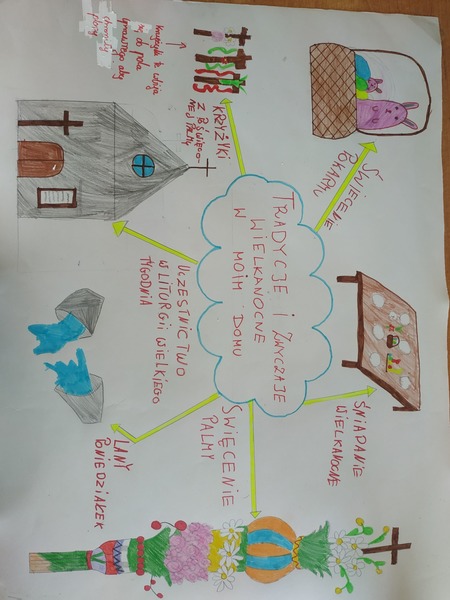 ŚWIĘCENIE
ŚNIADANIE
WIELKANOCNE
TRADYCJE I ZWYCZAJE
WIELKANOCNE
W MOIM DOMU
KRZYŻYKI
Z POŚWIĘCO-
NEJ PALMY
krzyżyki te wbija
się do pola
uprawnego aby
chroniły
plony
UCZESTNICTWO
W LITURGII WIELKIEGO
TYGODNIA
ŚWIĘCENIE
PALMY
LANY
PONIEDZIAŁEK